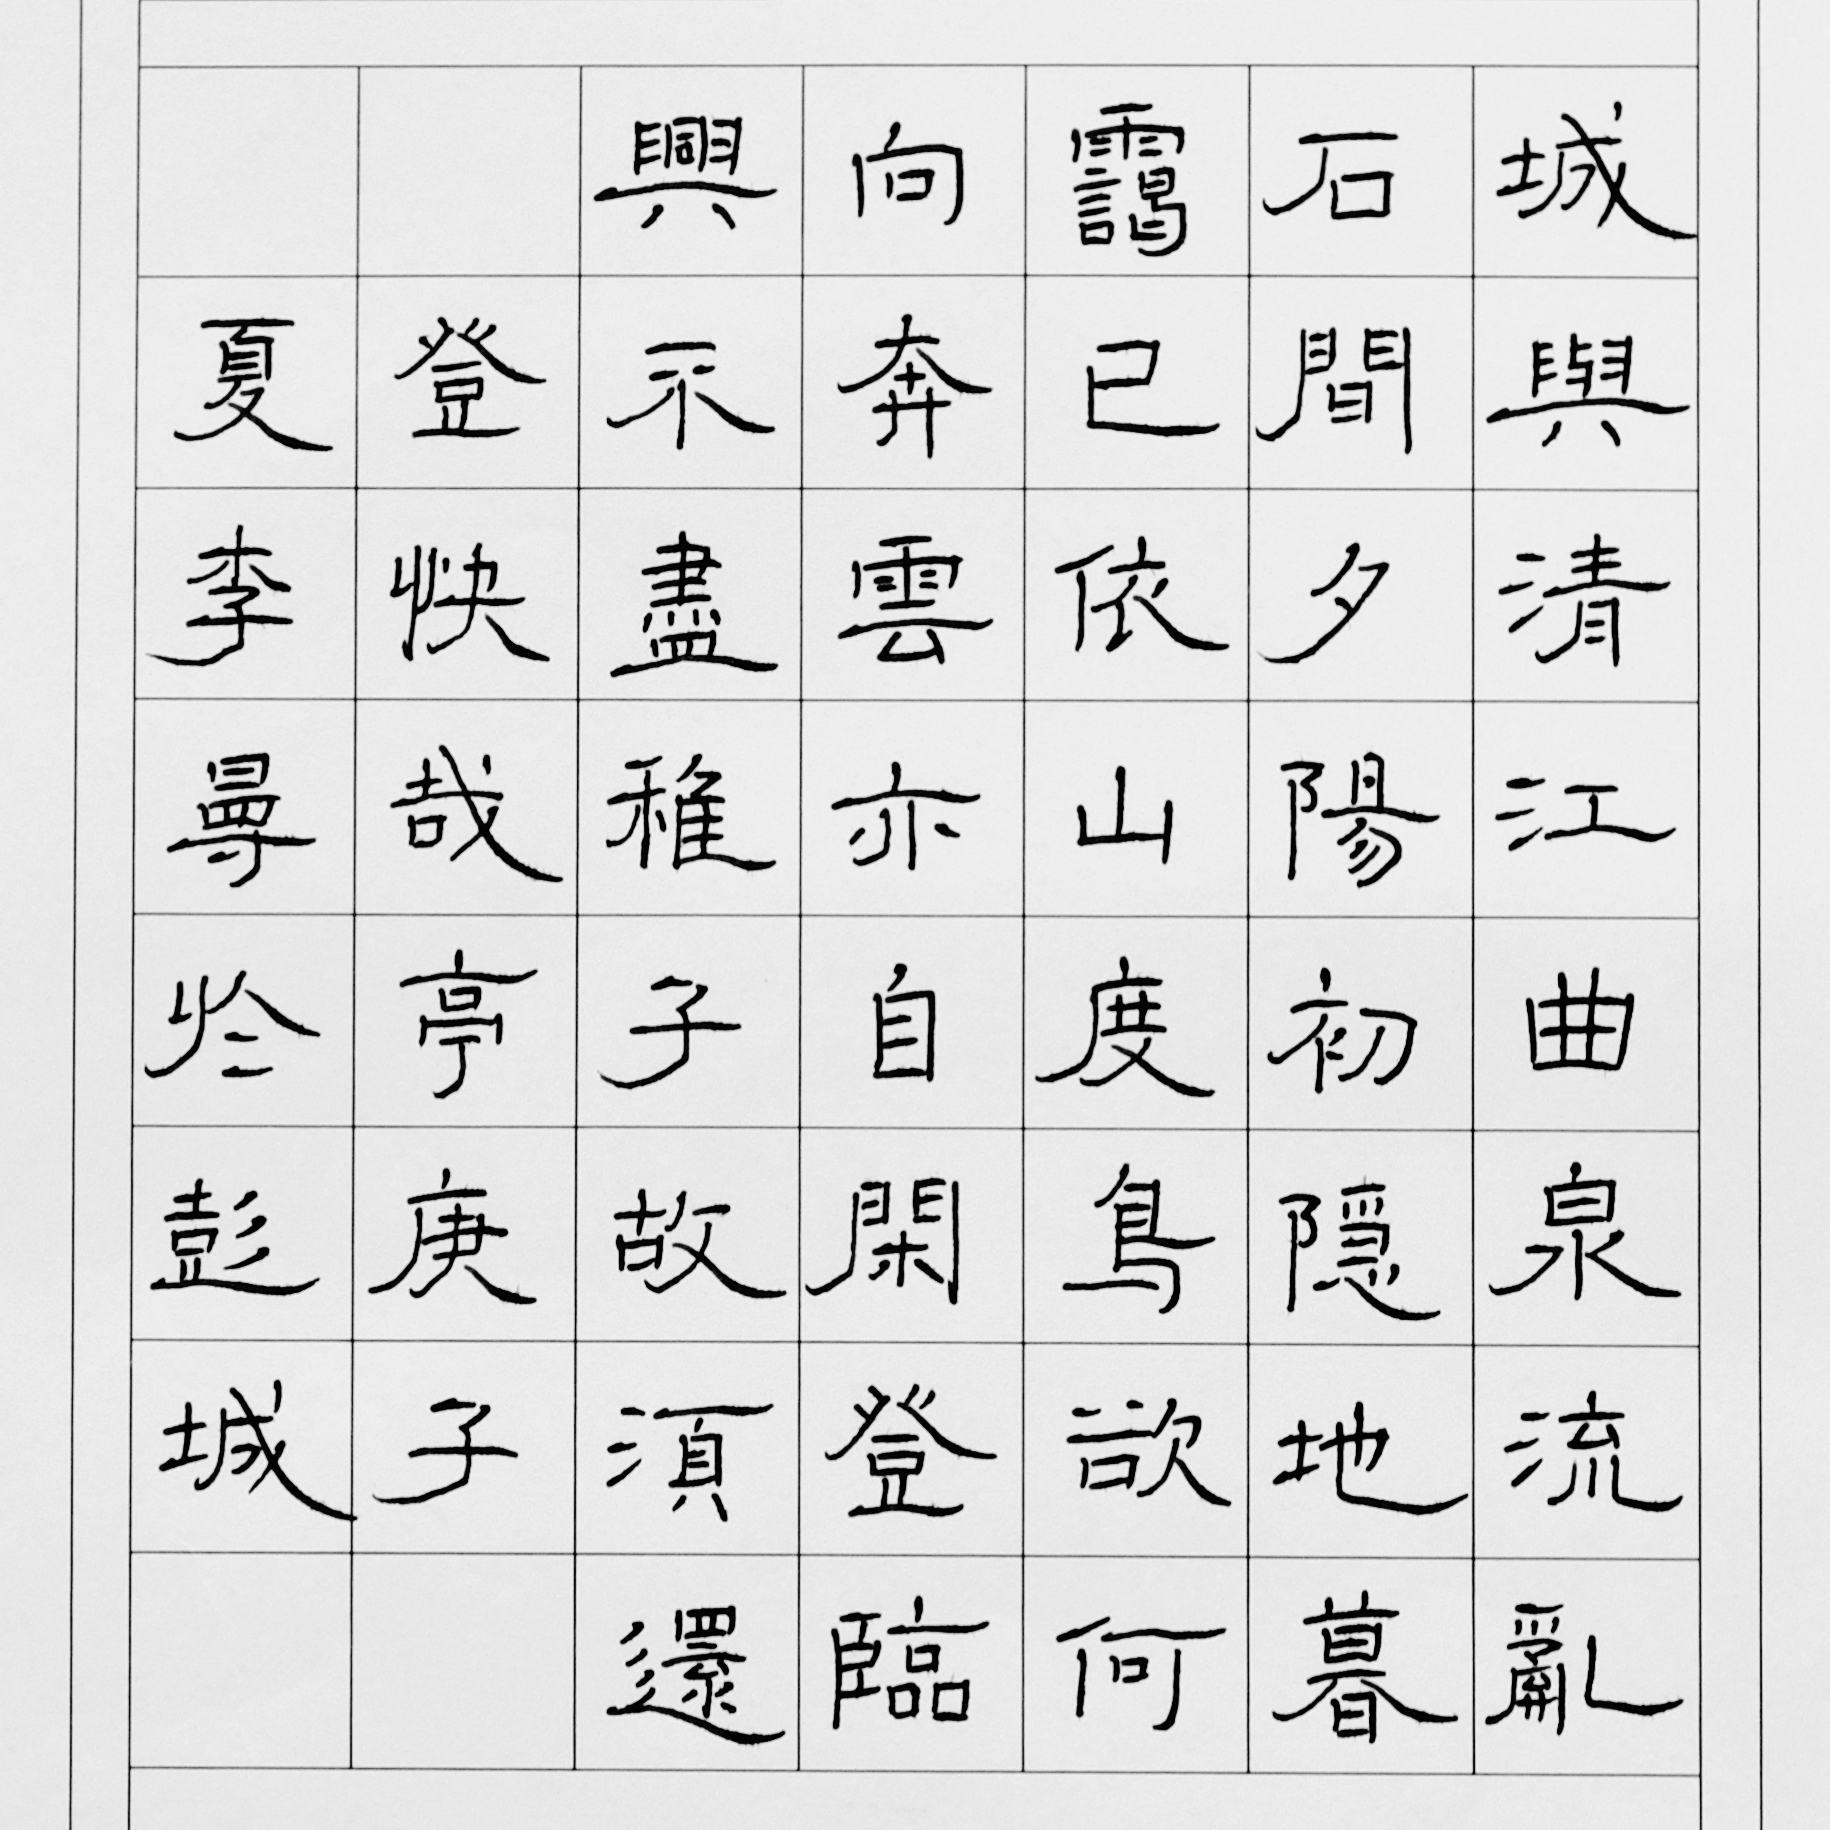 城與清江曲泉流亂
石間夕陽初隱地暮
靄已依山度鳥欲何
向奔雲亦自閑登臨
興不盡稚子故湏還
登快哉亭庚子
夏李曼於彭城